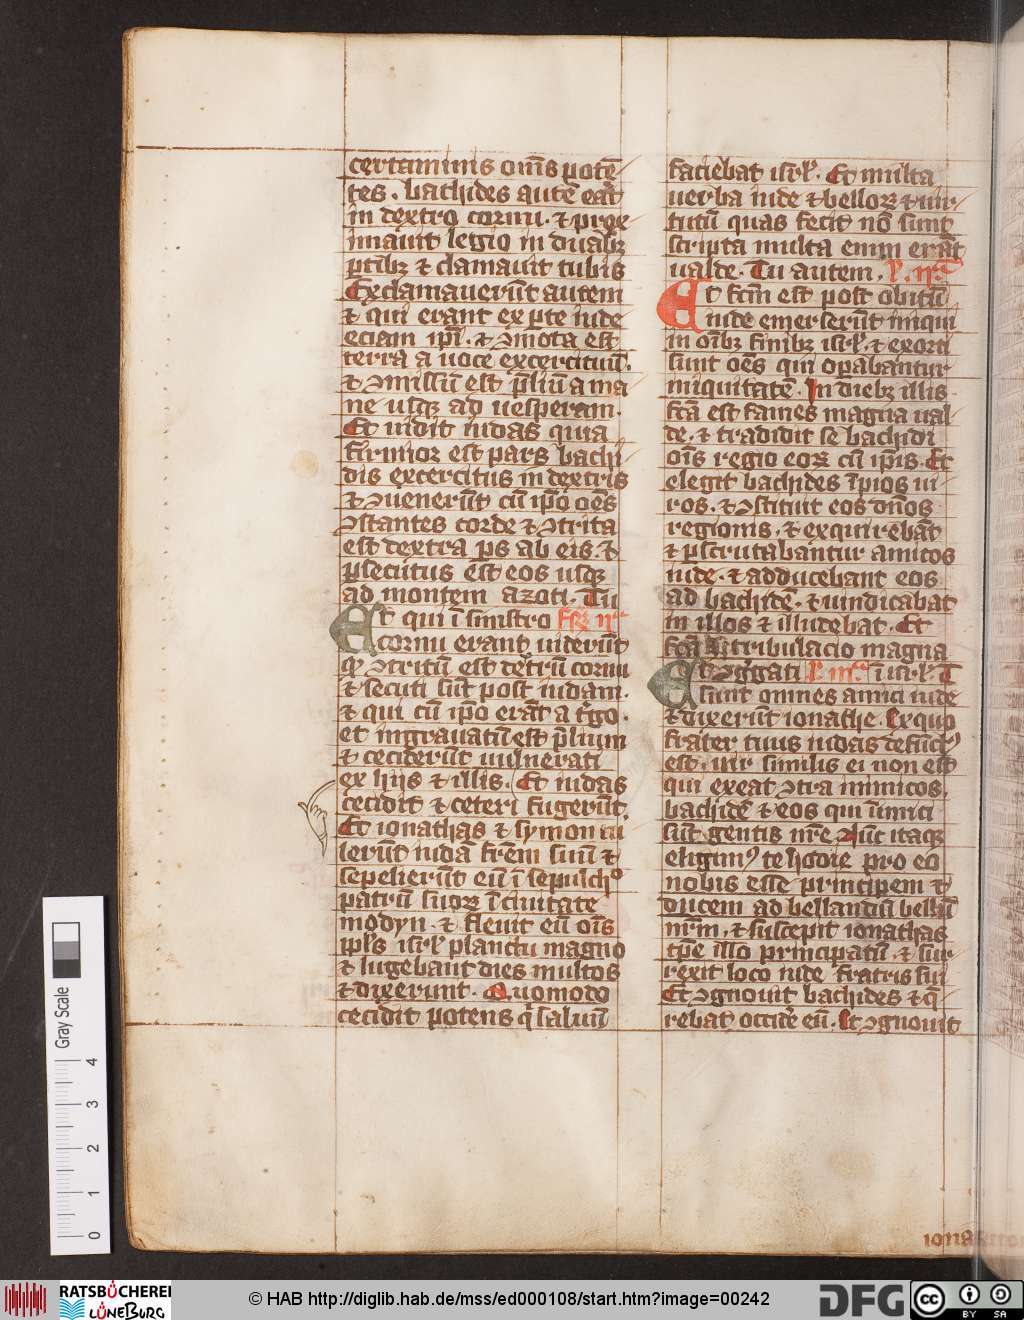 certaminis om̄s potē
tes. bachides autē eāt
in dextro cornu. & prox
imauit legio in duabꝫ
ꝑtibꝫ & clamauit tubis
Exclamauerūt autem
& qui erant ex ꝑte iude
eciam ip̄i. & ꝯmota est
terra a uoce excercituū.
& ꝯmissū est p̄liū a ma
ne usqꝫ ad uesperam.
Et uidit iudas quia
firmior est pars bachi
dis excercitus in dextris
& ꝯuenerūt cū ip̄o om̄s
ꝯstantes corde & ꝯtrita
est dextra ps ab eis. &
ꝑsecutus est eos usqꝫ
ad montem azoti. Tu
Et qui ī sinistro
cornu erant uiderūt
qꝫ ꝯtritū est dextrū cornu
& secuti sūt post iudam.
& qui cū ip̄o erāt a t̓go.
et ingrauatū est p̄lium
& ceciderūt uulnerati
ex hiis & illis. Et iudas
cecidit & ceteri fugerūt.
Et ionathas & symon tu
lerūt iudā frēm suū &
sepelierūt eū ī sepulchͦ
patrū suoꝝ ī ciuitate
modyn. & fleuit eū om̄s
ppl̄s isrl̓ planctu magno
& lugebant dies multos
& dixerunt. Quomodo
cecidit potens q̓ saluū
faciebat isrl̓. Et multa
uerba iude & belloꝝ & uir
tutū quas fecit nō sunt
scripta multa enim erāt
ualde. Tu autem.
Et fc̄m est post obitū
iude emerserūt iniqui
in om̄ibꝫ finibꝫ isrl̓. & exorti
sunt om̄s qui opabantur
iniquitatē. In diebꝫ illis
fc̄a est fames magna ual
de. & tradidit se bachidi
om̄is regio eoꝝ cū ip̄is. Et
elegit bachides īpios ui
ros. & ꝯstituit eos dn̄os
regionis. & exquirebāt
& ꝑscrutabantur amicos
iude. & adducebant eos
ad bachidē. & uindicabat
in illos & illudebat. Et
fc̄a ē tribulacio magna
ī isrl̓. T
Et ꝯg̓gati
sunt omnes amici iude
& dixerūt ionathe. Exquo
frater tuus iudas defūctꝰ
est. uir similis ei non est
qui exeat ꝯtra inimicos.
bachidē & eos qui inimici
sūt gentis nr̄e. Nūc itaqꝫ
eligimꝰ te hodie pro eo
nobis esse principem &
ducem ad bellandū bellū
nr̄m. & suscepit ionathas
tp̄e illo principatū. & sur
rexit loco iude fratris sui
Et ꝯgnouit bachides & q̄
rebat occidē eū. Et ꝯgnouit
Gray Scale
4
3
2
1
0
RATSBÜCHEREI
LÜNEBURG
© HAB http://diglib.hab.de/mss/ed000108/start.htm?image=00242
DFG
cc
BY SA